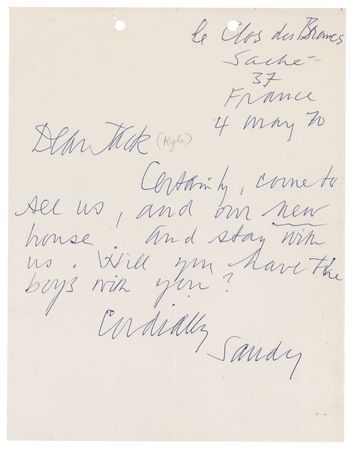 le Clos des Brames
Saché
37
France
4 May 70
Dear Jack (Kyle)
Certainly, come to
see us, and our new
house. and stay with
us. Will you have the
boys with you?
Cordially
Sandy